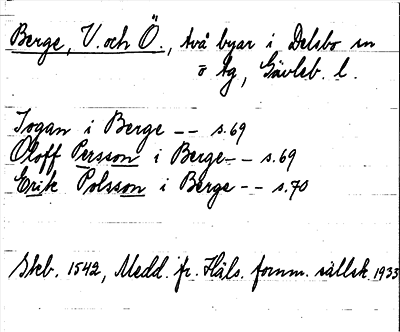 Berge, V. och Ö., två byar i Delsbo sn
o tg, Gävleb. l.
Jogan i Berge -- s. 69
Oloff Persson i Berge -- s. 69
Erik Polsson i Berge -- s. 70
Skb. 1542, Medd. fr. Häls. fornm. sällsk. 1933